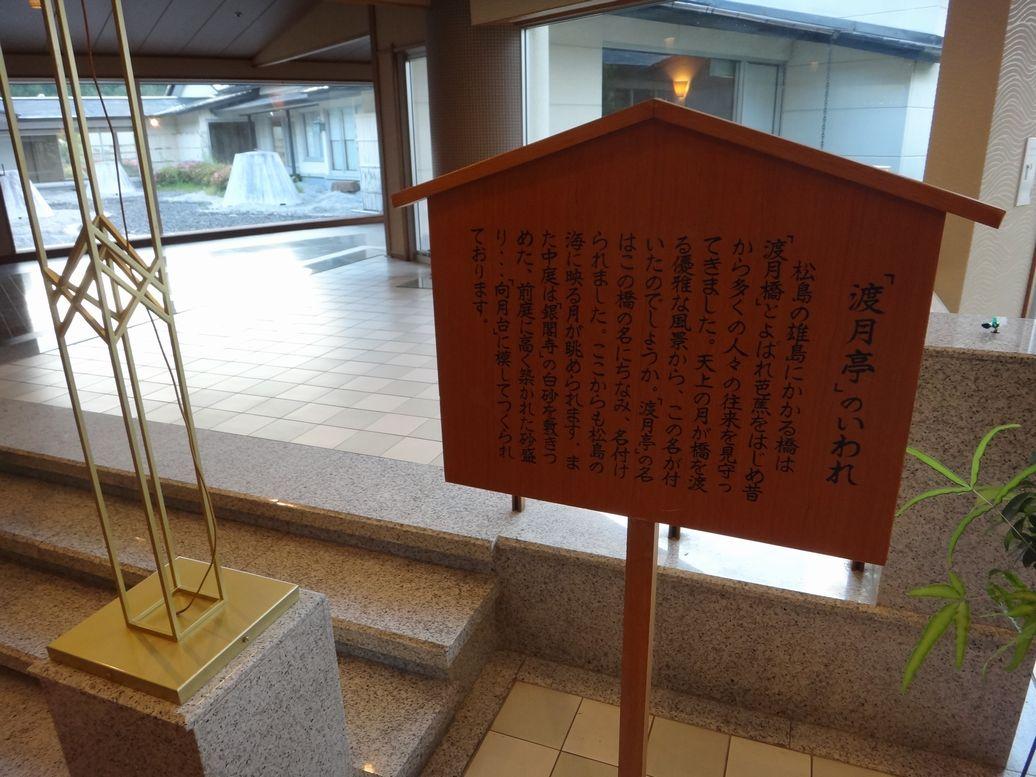 「渡月亭」のいわれ
松島の雄島にかかる橋は
「渡月橋」とよばれ芭蕉をはじめ昔
から多くの人々の往来を見守っ
てきました。天上の月が橋を渡
る優雅な風景から、この名が付
いたのでしょうか。「渡月亭」の名
はこの橋の名にちなみ 名付け
られました。ここからも松島の
海に映る月が眺められます．ま
た中庭は「銀閣寺」の白砂を敷きつ
めた、前庭に高く築かれた砂盛
り・・・「向月台に模してつくられ
ております。